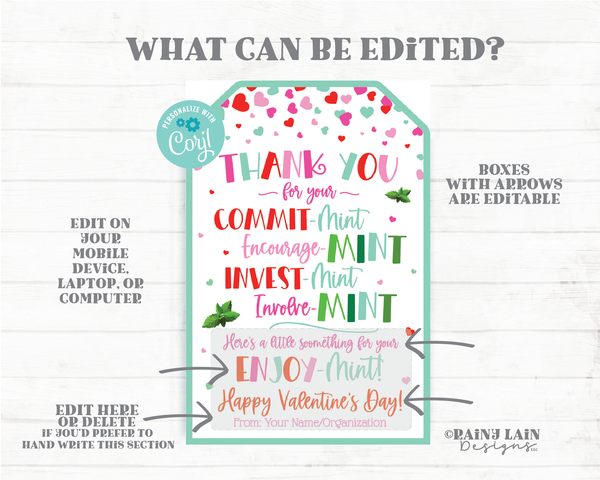 WHAT CAN BE EDITED?
PERSONALIZE WITH
Corjl
THANK YOU
for your
COMMIT-Mint
Encourage-MINT
INVEST-Mint
Involve-MINT
Here's a little soomething for your
ENJOY-Mint!
Happy Valentine's Day!
From: Your Name/Organization
BOXES
WITH ARROWS
ARE EDITABLE
EDIT ON
YOUR
MOBILE
DEVICE,
LAPTOP, OR
COMPUTER
EDIT HERE
OR DELETE
IF YOU'D PREFER TO
HAND WRITE THIS SECTION
©RAINY LAIN
Designs LLC